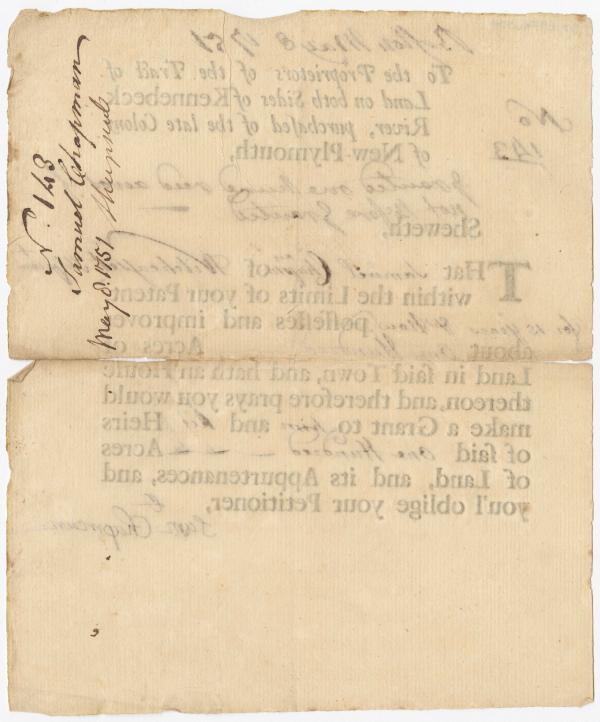 N. 143
Samuel Chapman
May 8. 1751
Boston May 8 1751
No
143
To the Proprietors of the Tract of
Land on both Sides of Kennebeck
River, purchased of the late Colony
of New-Plymouth,
Granted one hundred
not before Granted
Sheweth,
THat Samuel of
within the Limits of your Patent
for 15 Years possesses and improves
about one Hundred Acres of
Land in said Town, and hath an House
thereon, and therefore prays you would
make a Grant to him and his Heirs
of said one Hundred Acres
of Land, and its Appurtenances, and
you'l oblige your Petitioner,
Sam Chapman